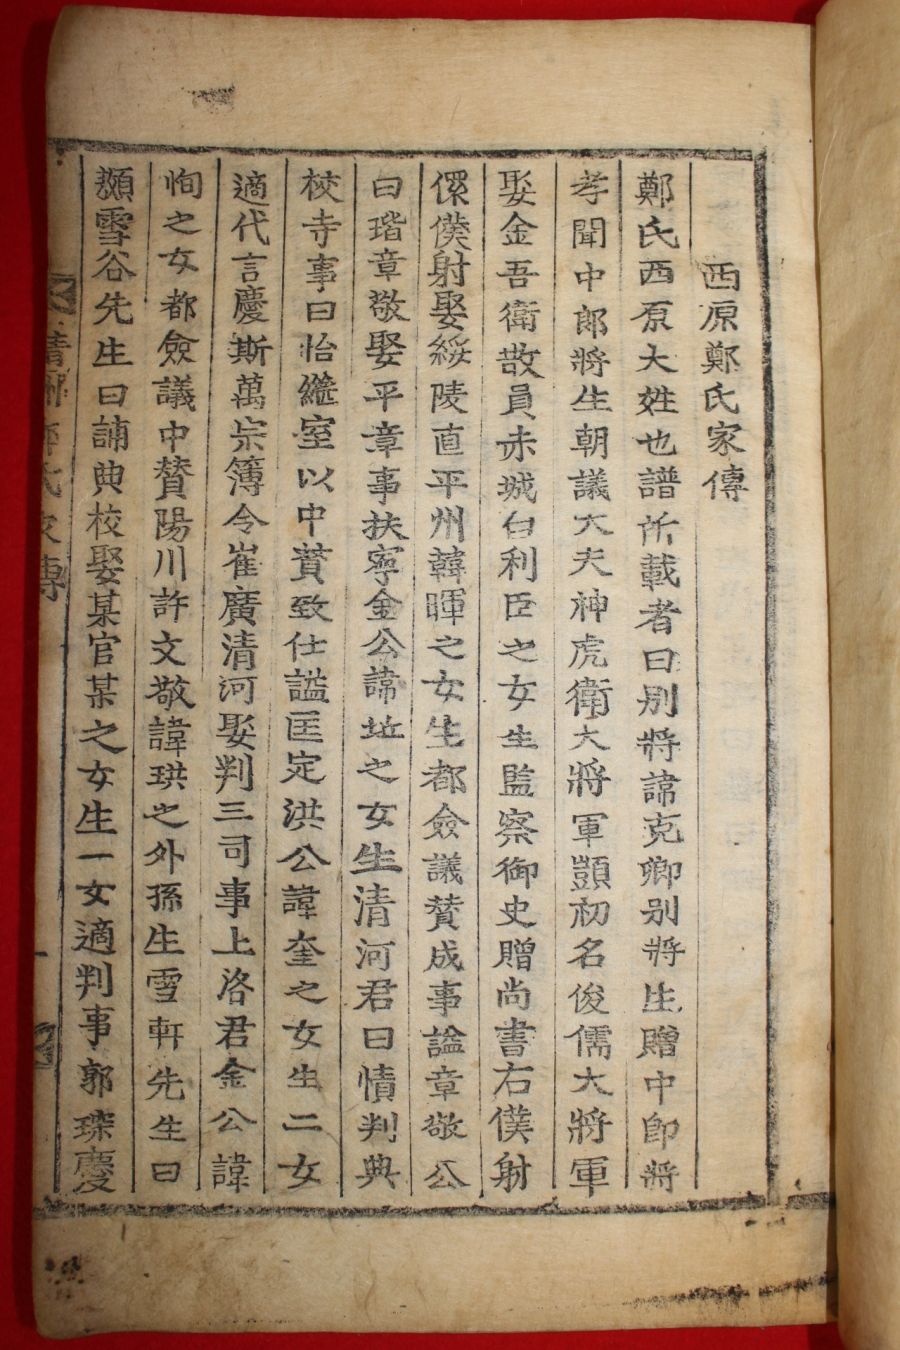 西原鄭氏家傳
鄭氏西原大姓也譜所載者曰別將諱克卿別將生贈中郎將
孝聞中郎將生朝議大夫神虎衛大將軍顗初名俊儒大將軍
娶金吾衛散員赤城白利臣之女生監察御史贈尚書右僕射
僕射娶綏陵直平州韓暉之女生都僉議贊成事謚章敬公
曰瑎章敬娶平章事扶寧金公諱坵之女生清河君曰情判典
校寺事曰怡繼室以中贊致仕謚匡定洪公諱奎之女生二女
適代言慶斯萬宗簿令崔廣清河娶判三司事上洛君金公諱
恂之女都僉議中賛陽川許文敬諱珙之外孫生雪軒先生曰
䫨雪谷先生曰誧典校娶某官某之女生一女適判事郭琛慶
清州鄭氏家傳
一